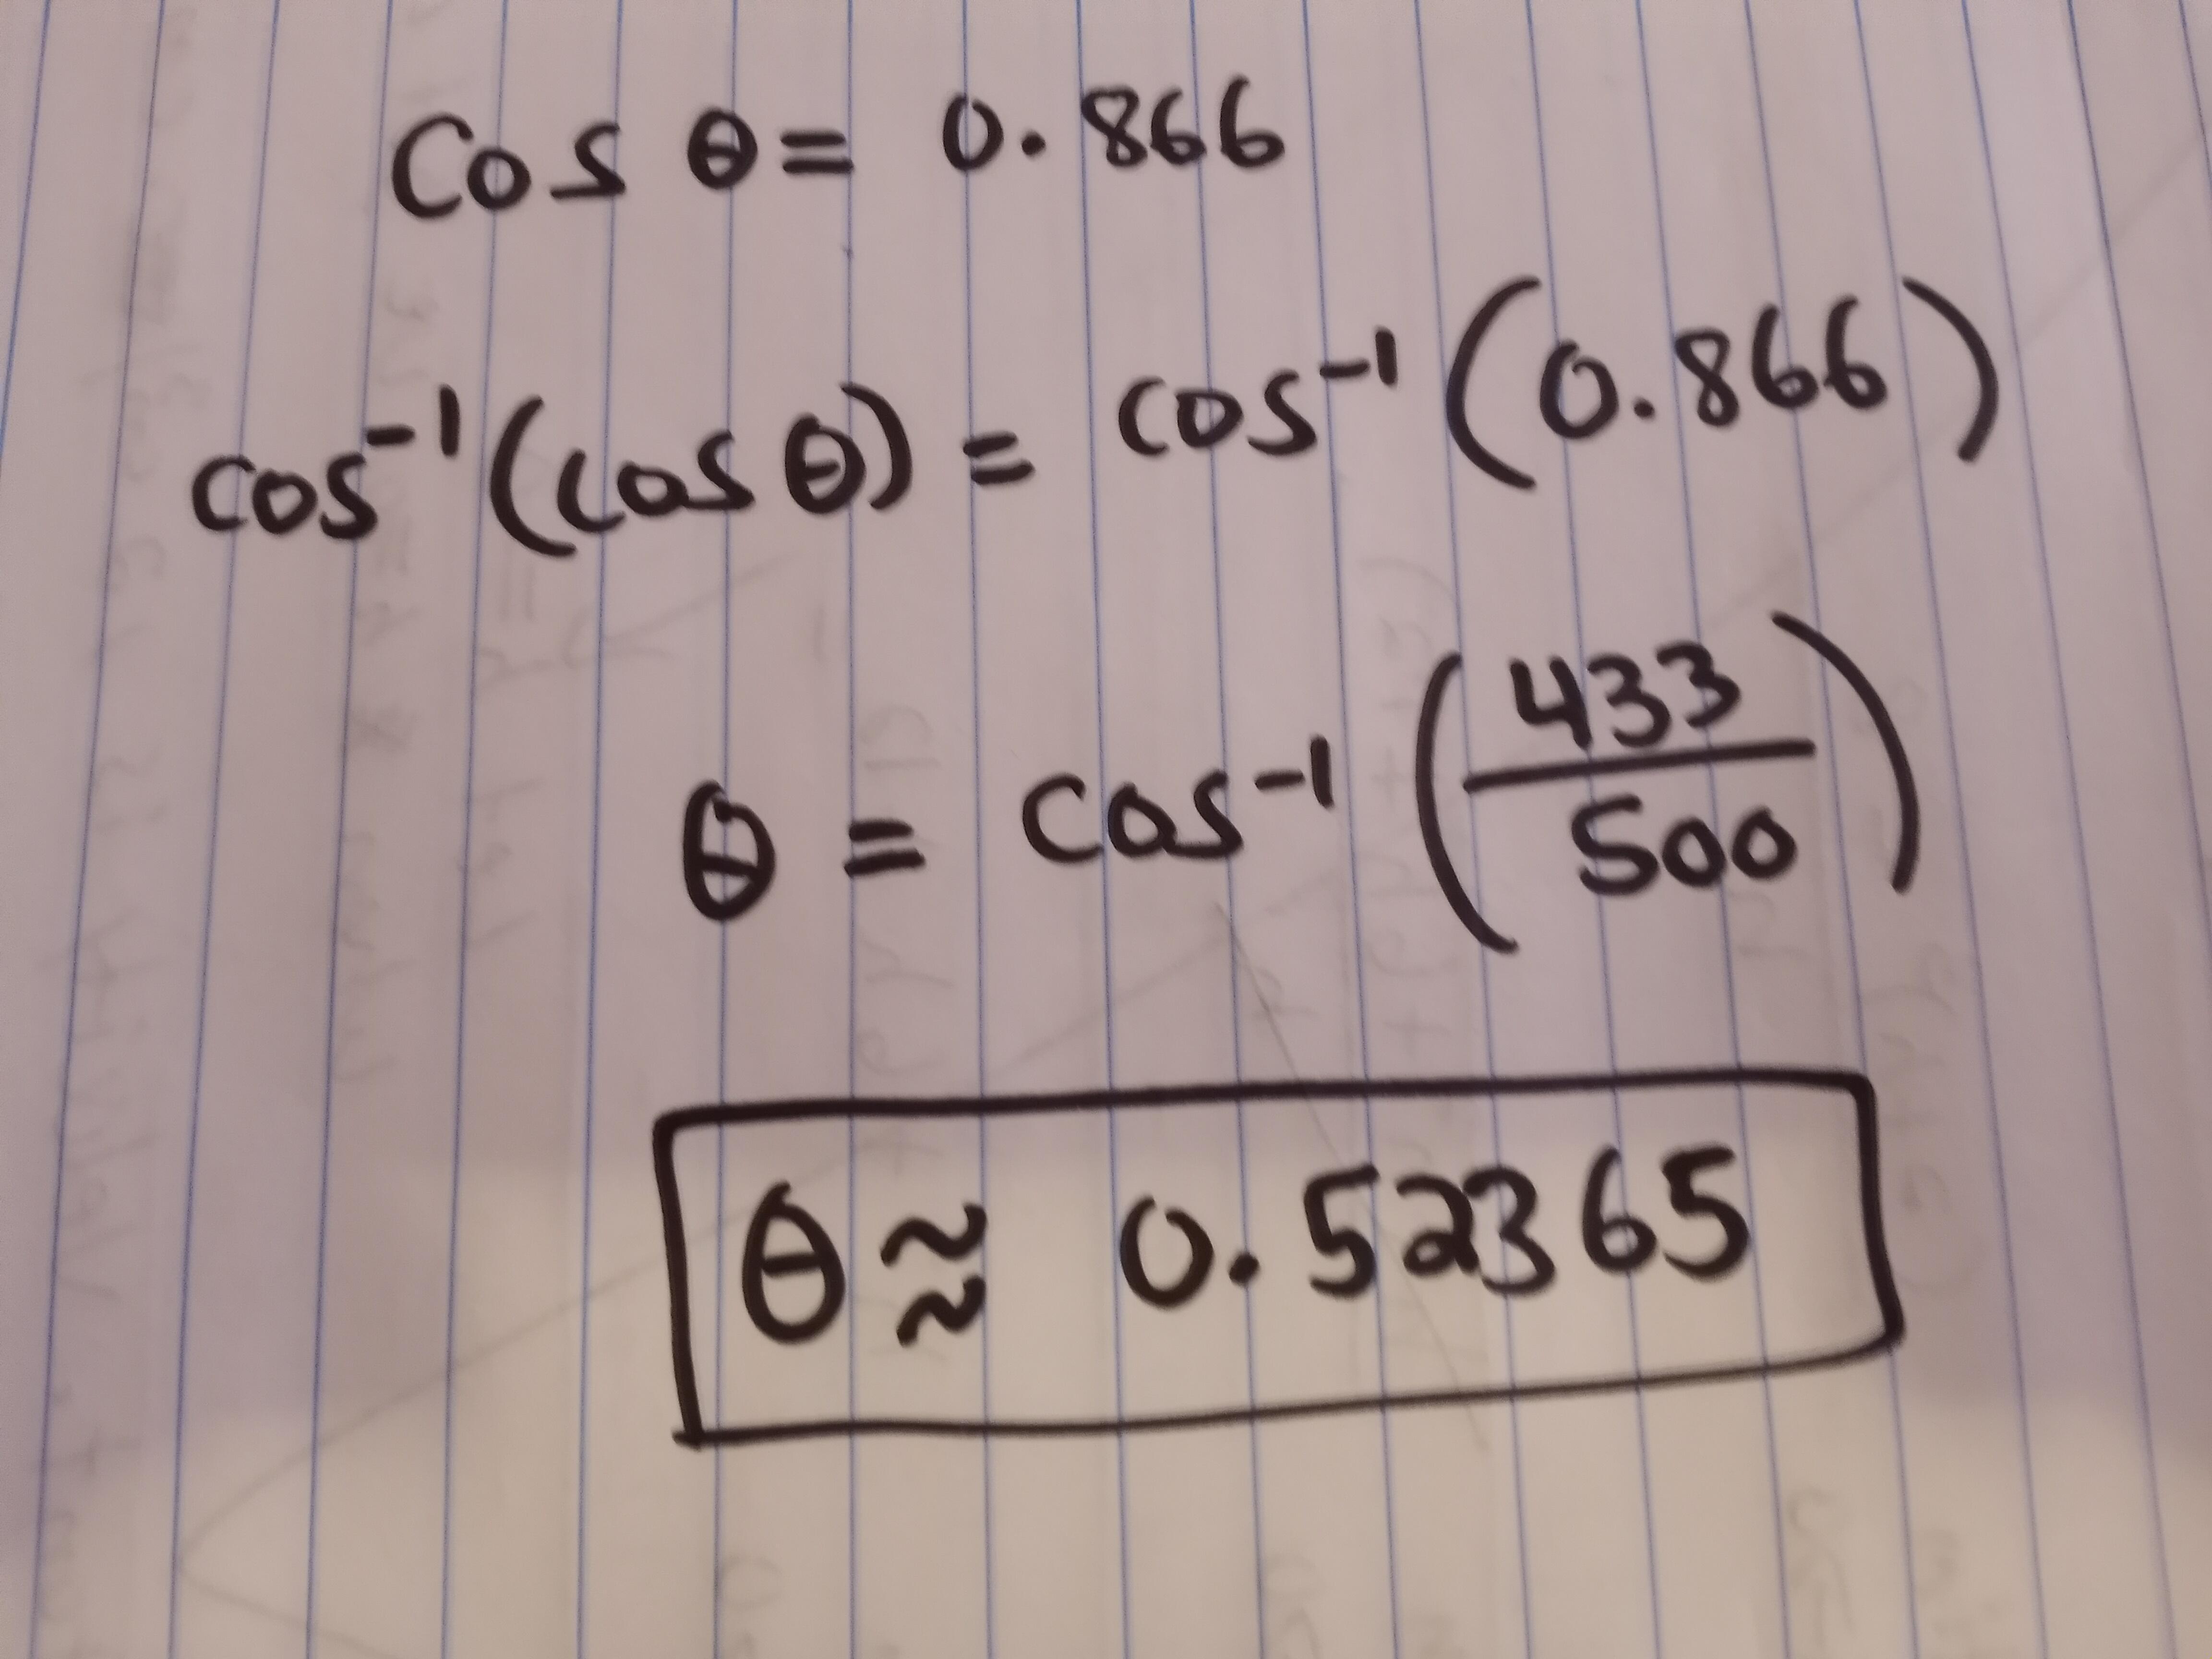 Cos θ = 0.866
cos⁻¹(cos θ) = cos⁻¹(0.866)
θ = cos⁻¹(433/500)
θ ≈ 0.52365